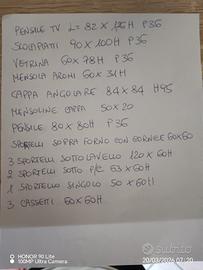 PENSILE TV L= 82 X 126H P36
SCOLAPIATTI 90 X 100H P36
VETRINA 60 X 78H P36
MENSOLA AROMI 60 X 31H
CAPPA ANGOLARE 84 X 84 H95
MENSOLINE CAPPA 50 X 20
PENSILE 80 X 80H P36
SPORTELLI SOPRA FORNO CON CORNICE 60X60
3 SPORTELLI SOTTO LAVELLO 120 X 60H
2 SPORTELLI SOTTO P/C 63 X 60H
1 SPORTELLO SINGOLO 50 X 60H
3 CASSETTI 60X60H
HONOR 90 Lite
100MP Ultra Camera
Subito
20/03/2026 07:20